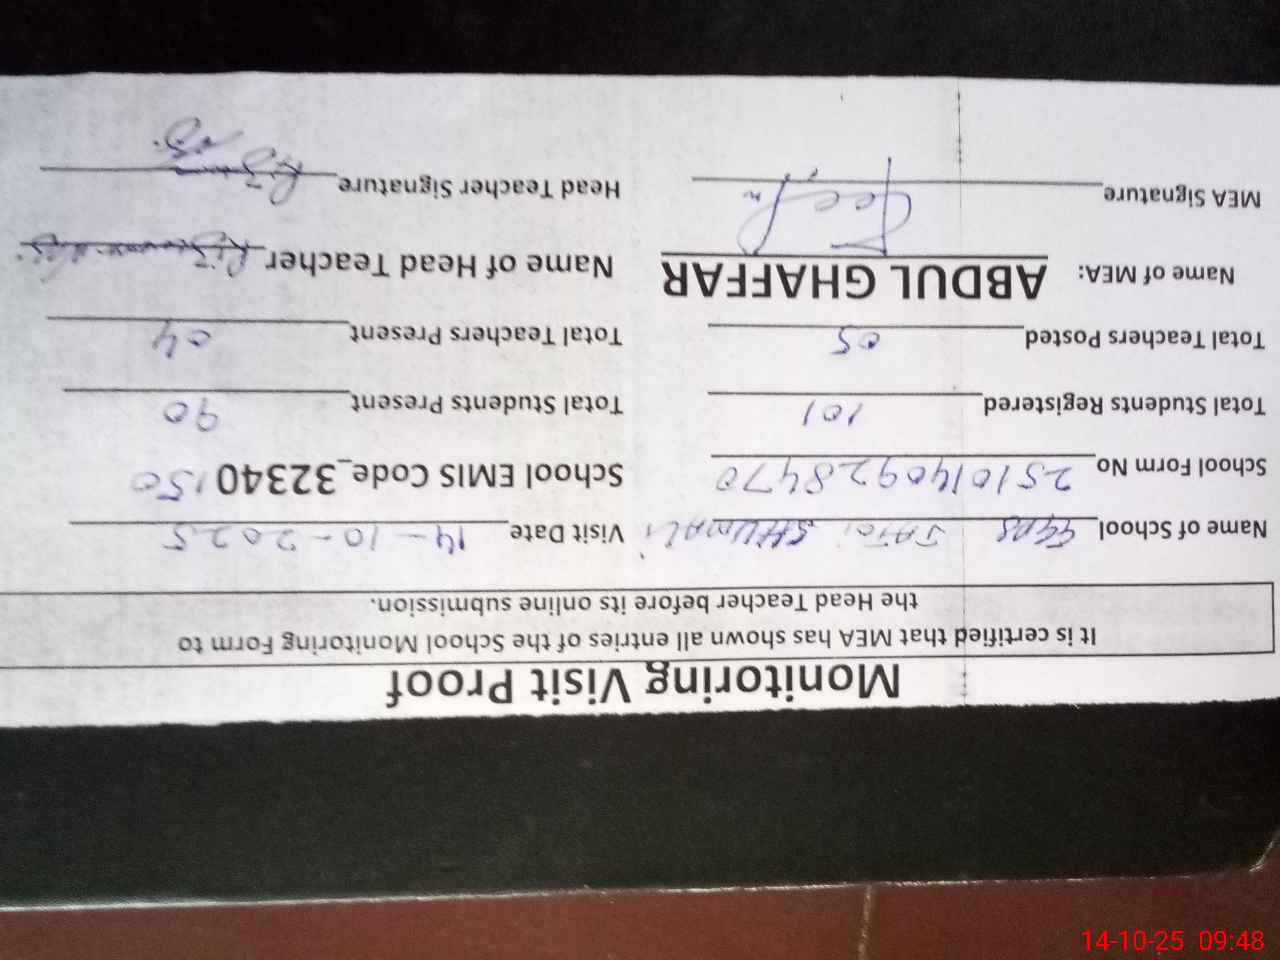 Monitoring Visit Proof
It is certified that MEA has shown all entries of the School Monitoring Form to
the Head Teacher before its online submission.
Name of School GGPS JATOI SHUMALI Visit Date 14-10-2025
School Form No 2510140928470 School EMIS Code_32340150
Total Students Registered 101 Total Students Present 90
Total Teachers Posted 05 Total Teachers Present 04
Name of MEA: ABDUL GHAFFAR Name of Head Teacher
MEA Signature Head Teacher Signature
14-10-25 09:48